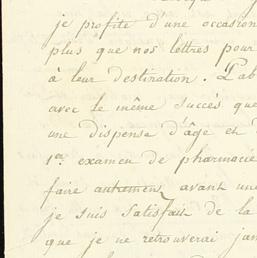 je profite d'une occasion
plus que nos lettres pour
à leur destination. L'ab
avec le même succès que
une dispense d'âge et
1er examen de pharmacie
faire autrement avant une
je suis satisfait de la
que je ne retrouverai jam